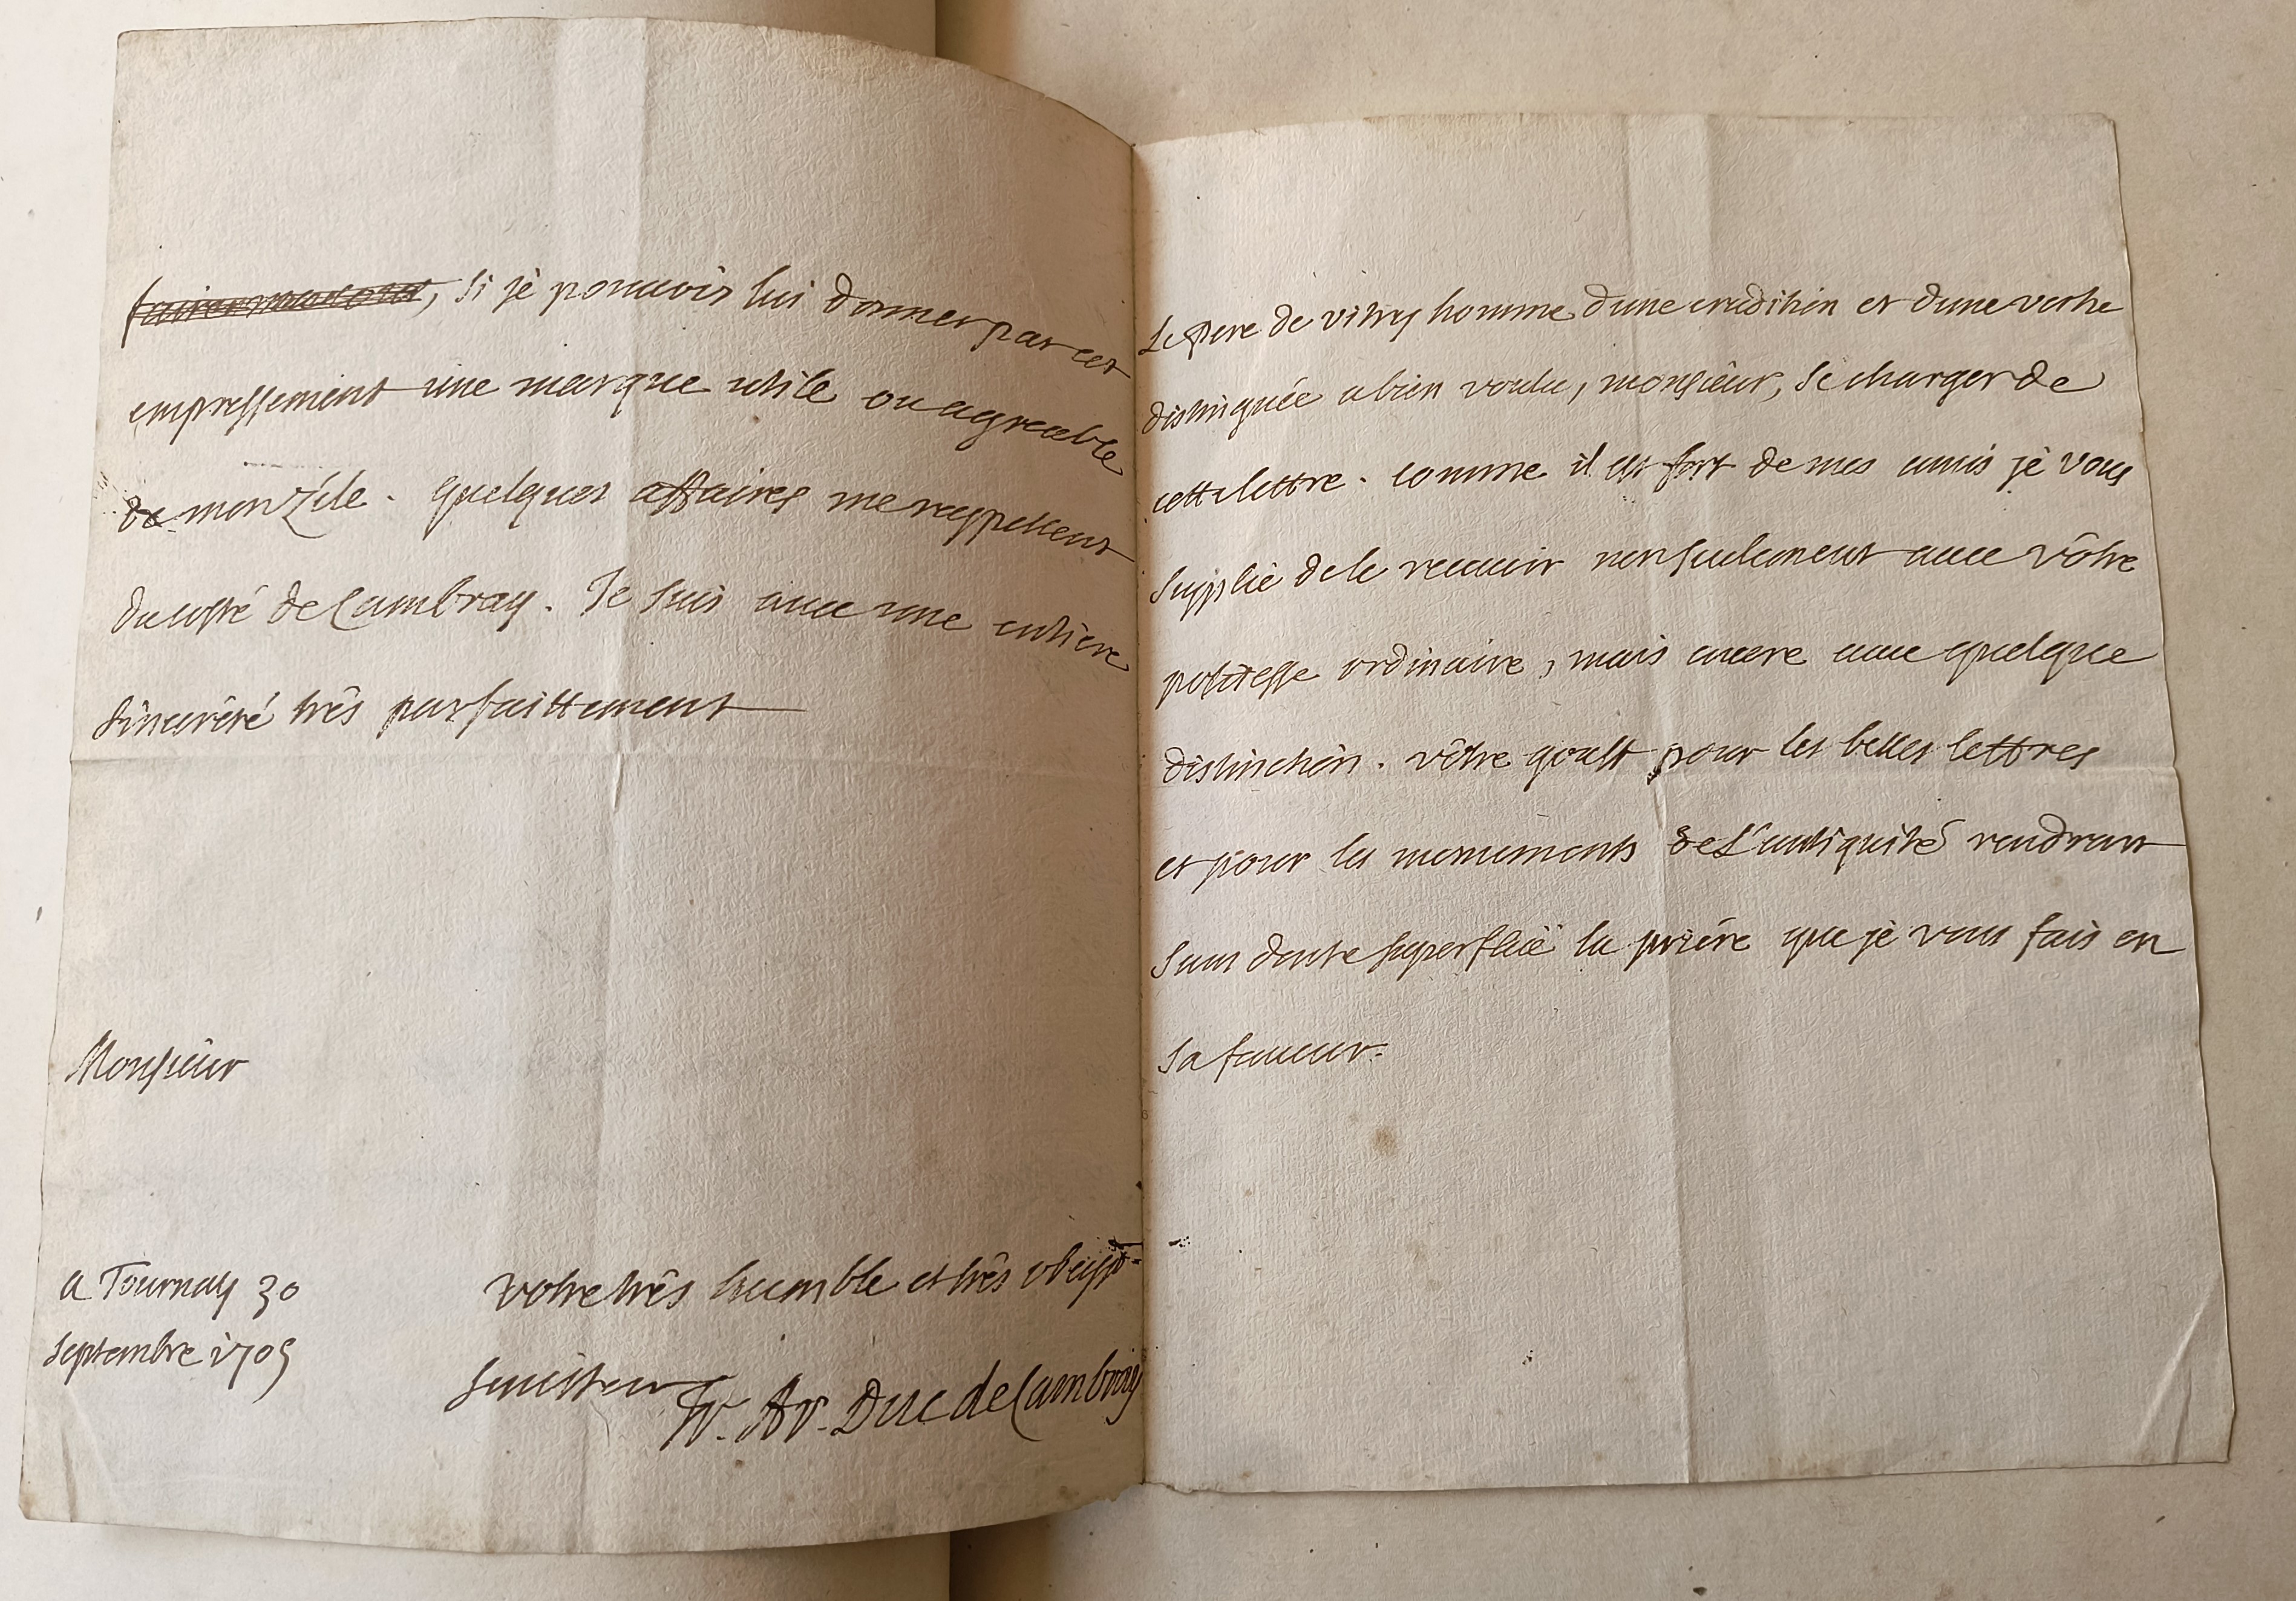 , si je pouuois lui donner par cet
empressement une marque utile ou agreable
de mon zéle. quelques affaires me rappellent
du costé de Cambray. Je suis auec une entiere
sincerité trés parfaittement
Monsieur
a Tournay 30
septembre 1705
votre trés humble et trés obeiss=
seruiteur
Fr. Ar. Duc de Cambray
Le pere de vitry homme dune erudition et dune vertu
distinguée a bien voulu, monsieur, se charger de
cette lettre. comme il est fort de mes amis je vous
supplie de le receuoir non seulement auec vôtre
politesse ordinaire, mais encore auec quelque
distinction. vôtre goust pour les belles lettres
et pour les monuments de L'antiquité rendront
sans doute superfluë la priére que je vous fais en
sa faueur.